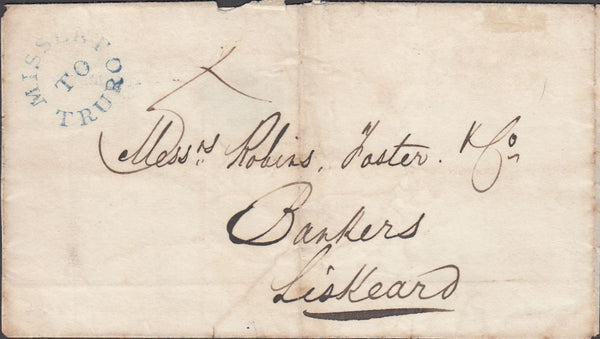 MISSENT
TO
TRURO
Messrs Robins, Foster. & Co
Bankers
Liskeard